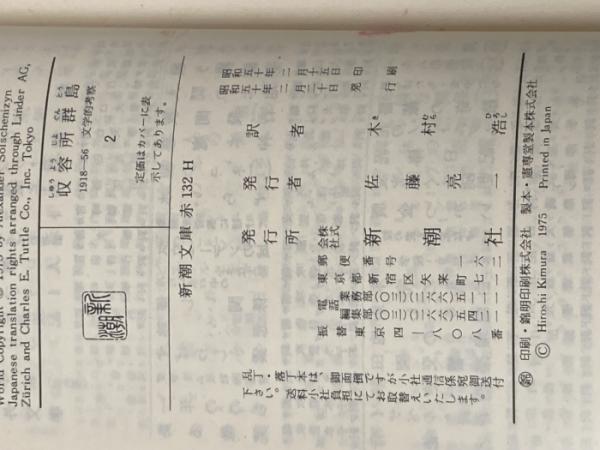 World Copyright © 1973 by Alexander Solschenizyn
Japanese translation rights arranged through Linder AG,
Zürich and Charles E. Tuttle Co., Inc. Tokyo
しゅう よう じょ ぐん とう
収容所群島
1918—56 文学的考察
2
定価はカバーに表
示してあります。
新潮文庫 赤 132 H
昭和五十年二月十五日 印刷
昭和五十年二月二十日 発行
訳者 木村浩
き むら ひろし
発行者 佐藤亮一
発行所 株式会社 新潮社
郵便番号 一六二
東京都新宿区矢来町七一
電話 業務部
編集部
振替東京四—八〇八番
乱丁・落丁本は、御面倒ですが小社通信係宛御送付
下さい。送料小社負担にてお取替えいたします。
印刷・錦明印刷株式会社 製本・憲専堂製本株式会社
© Hiroshi Kimura 1975 Printed in Japan
新潮